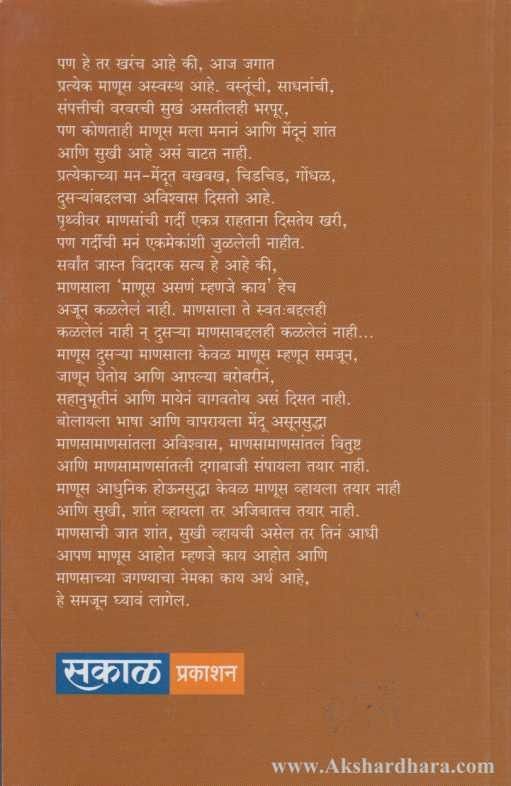 पण हे तर खरंच आहे की, आज जगात
प्रत्येक माणूस अस्वस्थ आहे. वस्तूंची, साधनांची,
संपत्तीची वरवरची सुखं असतीलही भरपूर,
पण कोणताही माणूस मला मनानं आणि मेंदूनं शांत
आणि सुखी आहे असं वाटत नाही.
प्रत्येकाच्या मन-मेंदूत वखवख, चिडचिड, गोंधळ,
दुसऱ्यांबद्दलचा अविश्वास दिसतो आहे.
पृथ्वीवर माणसांची गर्दी एकत्र राहताना दिसतेय खरी,
पण गर्दीची मनं एकमेकांशी जुळलेली नाहीत.
सर्वांत जास्त विदारक सत्य हे आहे की,
माणसाला ‘माणूस असणं म्हणजे काय’ हेच
अजून कळलेलं नाही. माणसाला ते स्वतःबद्दलही
कळलेलं नाही न् दुसऱ्या माणसाबद्दलही कळलेलं नाही...
माणूस दुसऱ्या माणसाला केवळ माणूस म्हणून समजून,
जाणून घेतोय आणि आपल्या बरोबरीनं,
सहानुभूतीनं आणि मायेनं वागवतोय असं दिसत नाही.
बोलायला भाषा आणि वापरायला मेंदू असूनसुद्धा
माणसामाणसांतला अविश्वास, माणसामाणसांतलं वितुष्ट
आणि माणसामाणसांतली दगाबाजी संपायला तयार नाही.
माणूस आधुनिक होऊनसुद्धा केवळ माणूस व्हायला तयार नाही
आणि सुखी, शांत व्हायला तर अजिबातच तयार नाही.
माणसाची जात शांत, सुखी व्हायची असेल तर तिनं आधी
आपण माणूस आहोत म्हणजे काय आहोत आणि
माणसाच्या जगण्याचा नेमका काय अर्थ आहे,
हे समजून घ्यावं लागेल.
सकाळ प्रकाशन
www.Akshardhara.com